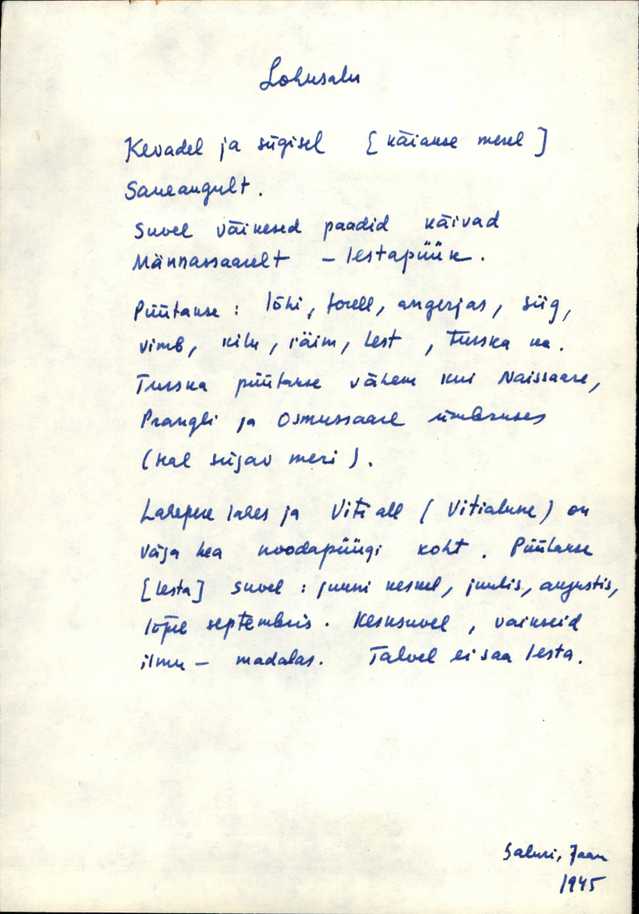 Lohusalu
Kevadel ja sügisel [käiakse merel]
Saueaugult.
Suvel väikesed paadid käivad
Männassaarelt - lestapüük.
Püütakse: lõhi, forell, angerjas, siig,
vimb, kilu, räim, lest, turska ka.
Turska püütakse vähem kui Naissaare,
Prangli ja Osmussaare ümbruses
(kal sügav meri).
Lahepere lahes ja Viti all (Vitialune) on
väga hea noodapüügi koht. Püütakse
[lesta] suvel: juuni keskel, juulis, augustis,
lõpeb septembris. Kesksuvel, vaikseid
ilmu - madalas. Talvel ei saa lesta.
Saluri, Jaan
1945